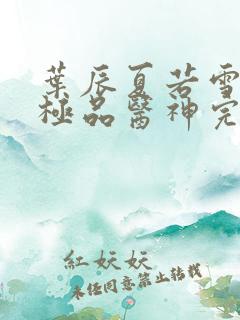 葉辰夏若雪
極品醫神完
紅妖妖
未經同意禁止轉載